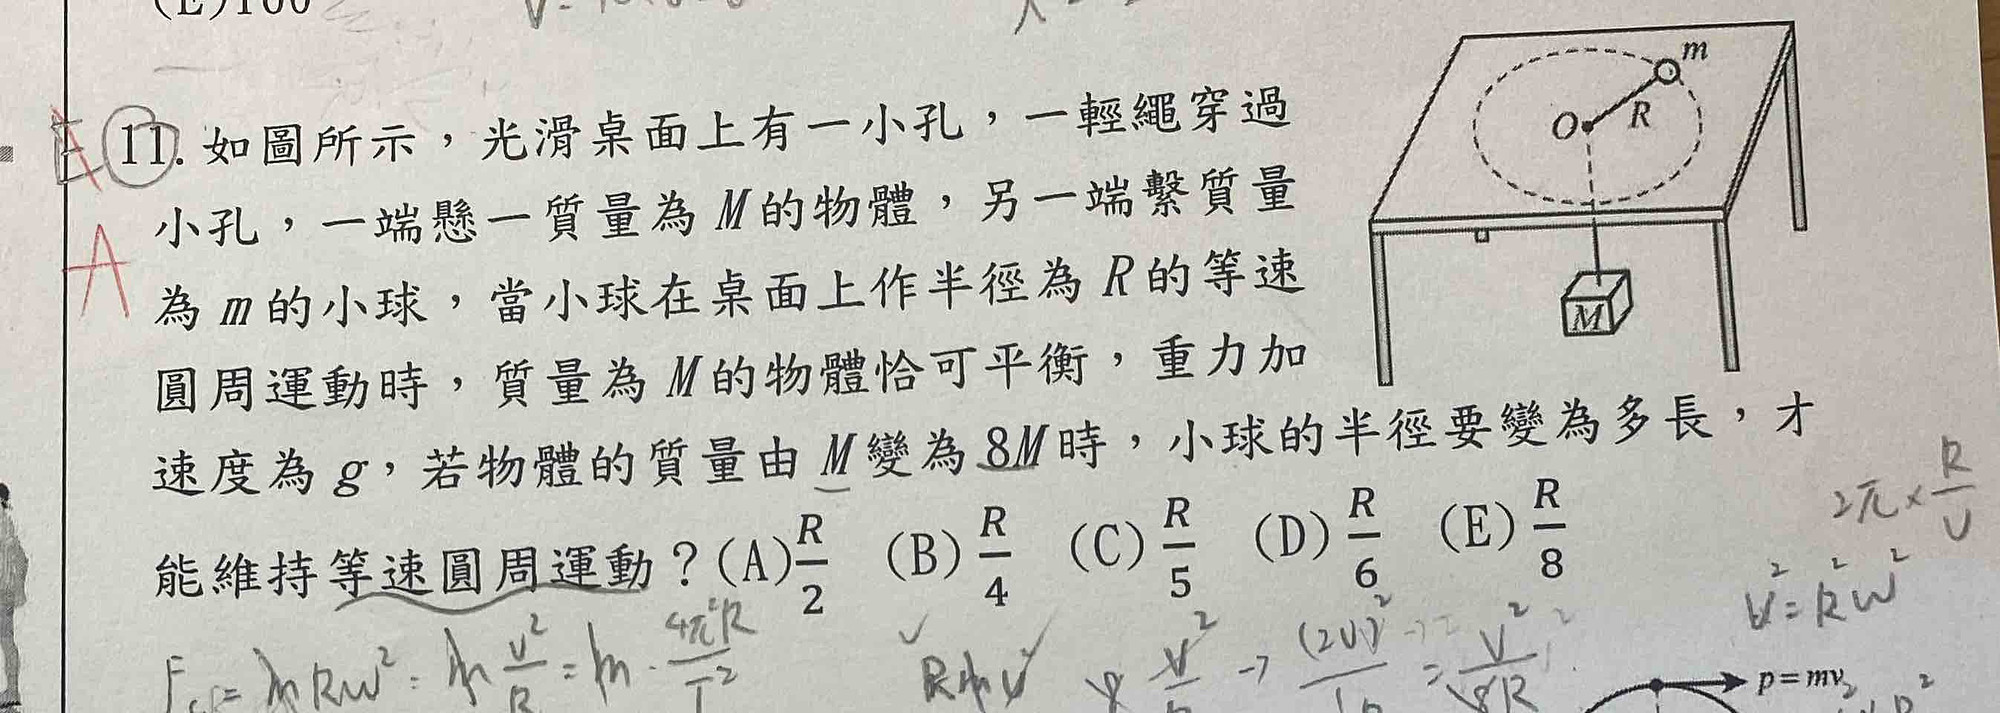 (E)100
E
11. 如圖所示，光滑桌面上有一小孔，一輕繩穿過
小孔，一端懸一質量為 M 的物體，另一端繫質量
A
為 m 的小球，當小球在桌面上作半徑為 R 的等速
圓周運動時，質量為 M 的物體恰可平衡，重力加
速度為 g，若物體的質量由 M 變為 8M 時，小球的半徑要變為多長，才
能維持等速圓周運動？(A) R/2 (B) R/4 (C) R/5 (D) R/6 (E) R/8
m
O R
M
2π × R/v
v² = R²w²
= mRw² = m v²/R = m · 4π²R/T²
(2v)²
= v²/8R
p = mv